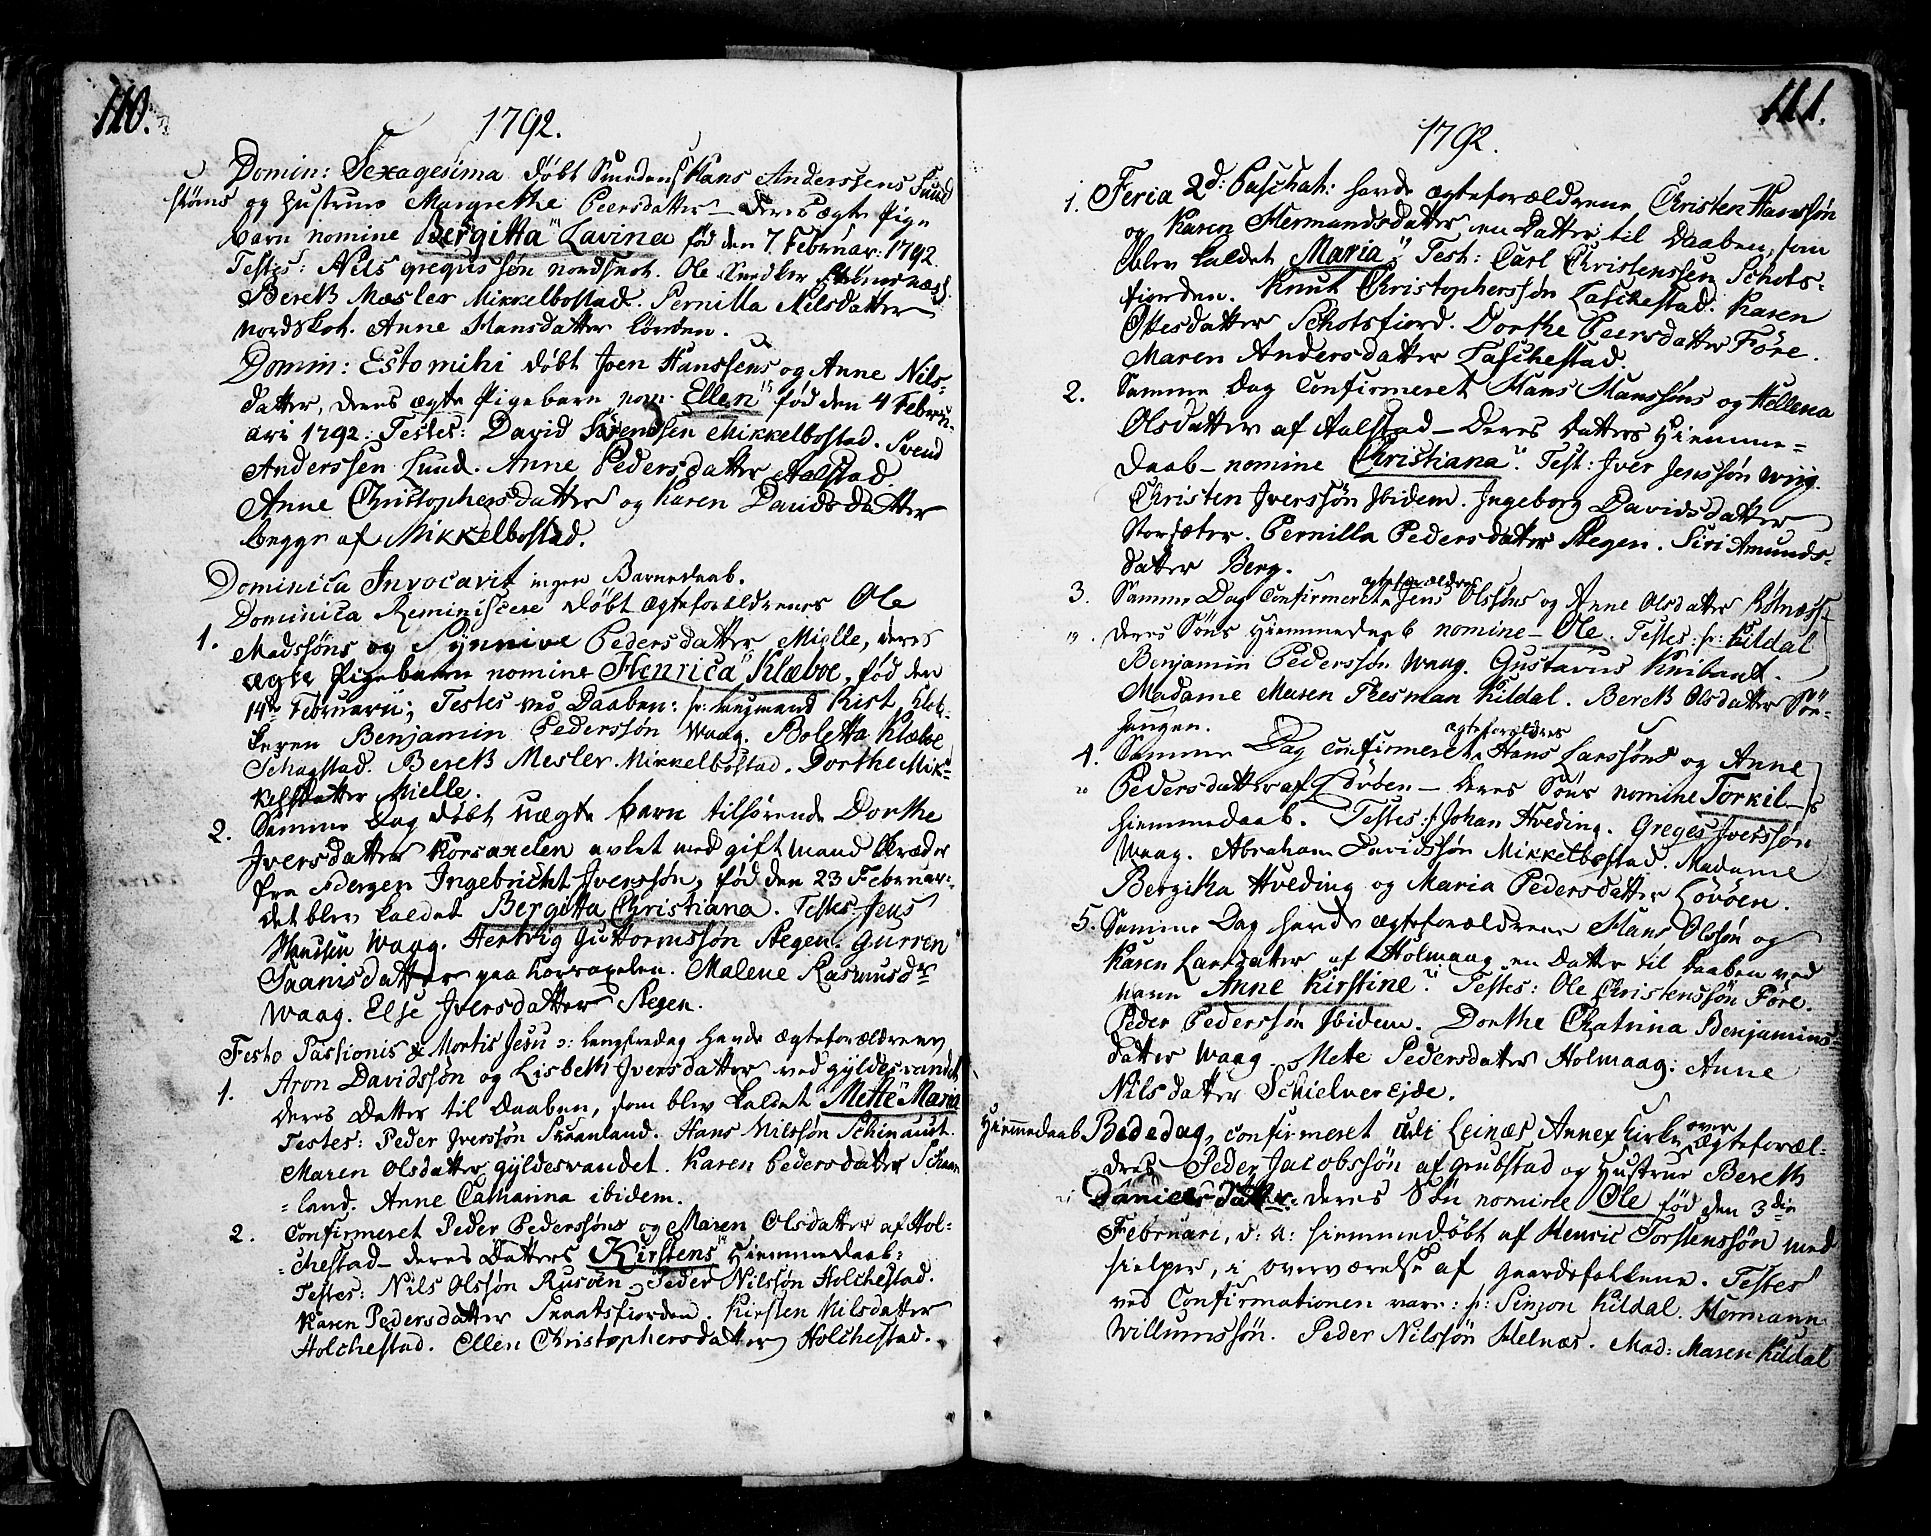 110.
1792.
Domin: Sexagesima døbt Smedens Hans Anderssens Sund
strøms og Hustrues Margrethe Peersdatter — deres ægte Pige
barn nomine Bergitta Lavina fød den 7 Februar: 1792.
Testes: Nils gregussøn nordskot. Ole Snedker
Bereth Mesler Mikkelbostad. Pernilla Nilsdatter
nordskot. Anne Hansdatter Lønden.
Domin: Estomihi døbt Joen Hanssens og Anne Nils-
datter, deres ægte Pigebarn nom: Ellen fød den 4 Febru-
ari 1792. Testes: David Sørensen Mikkelbostad. Svend
Anderssen Lund. Anne Pedersdatter Aalstad.
Anne Christophersdatter og Karen Davidsdatter
begge af Mikkelbostad.
Dominica Invocavit ingen Barnedaab.
Dominica Reminiscere døbt ægteforældrenes Ole
1. Madssøns og Synnive Pedersdatter Mielle, deres
ægte Pigebarn nomine Henrica Klæboe, fød den
14de Februarii; Testes ved Daaben: hr: Rist, klok-
keren Benjamin Pederssøn Waag. Boletta Klæboe
Schagstad. Bereth Mesler Mikkelbostad. Dorthe Mik-
kelsdatter Mielle.
2. Samme Dag døbt uægte barn tilhørende Dorthe
Iversdatter Korsaxelen avlet med gift mand Skræder
fra Bergen Ingebricht Iverssøn, fød den 23 Februar:
det blev kaldet Bergitta Christiana. Testes: Jens
Hansen Waag. Hertvig Guttormssøn Stegen. Gurren
Taanisdatter paa Korsaxelen. Malene Rasmusdr
Waag. Else Iversdatter Stegen.
Festo Passionis & Mortis Jesu ɔ: Langfredag havde ægteforældrene
1. Aron Davidssøn og Lisbeth Iversdatter ved gyldesvandet
deres Datter til Daaben, som blev kaldet Mette Maria
Testes: Peder Iverssøn Skaanland. Hans Nilssøn
Maren Olsdatter gyldesvandet. Karen Pedersdatter Schaan
=land. Anne Catharina ibidem.
2. Confirmeret Peder Pederssøns og Maren Olsdatter af Hol=
=chestad — deres Datters Kirstens Hiemmedaab:
Testes: Nils Olssøn Rusøen. Peder Nilssøn Holchestad.
Karen Pedersdatter Skaatsfiorden. Kirsten Nilsdatter
Holchestad. Ellen Christophersdatter Holchestad.
111.
1792.
1. Feria 2d: Paschat: havde ægteforældrene Christen Hanssøn
og Karen Hermandsdatter en Datter til Daaben, som
blev kaldet Maria. Test: Carl Christenssen Schots=
fiorden. Knut Christopherssøn Laschestad. Karen
Ottesdatter Schotsfiord. Dorthe Peersdatter Føre.
Maren Andersdatter Laschestad.
2. Samme Dag Confirmeret Hans Hanssøns og Hellena
Olsdatter af Aalstad — deres Datters Hiemme=
Daab — nomine Christiana. Test: Iver Jenssøn Wiig.
Christen Iverssøn Ibidem. Ingeborg Davidsdatter
Storsæter. Pernilla Pedersdatter Stegen. Siri Amunds-
datter Berg.
3. Samme Dag Confirmeret ægteforældres Jens Olssøns og Anne Olsdatter Røtnæss
deres Søns Hiemmedaab nomine — Ole. Testes: hr: Kildal
Benjamin Pederssøn Waag. Gustavus
Madame Maren Thesman Kildal. Bereth Olsdatter Sør-
haugen.
4. Samme Dag Confirmeret ægteforældres Hans Larssøns og Anne
Pedersdatter af Løvøen — deres Søns nomine Torkil
hiemmedaab. Testes: hr Johan Hveding. Greges Iverssøn
Waag. Abraham Davidssøn Mikkelbostad. Madame
Bergitha Hveding og Maria Pedersdatter Løvøen.
5. Samme Dag havde ægteforældrene Hans Olssøn og
Karen Larsdatter af Holmaag en Datter til Daaben ved
navn Anne Kirstine. Testes: Ole Christenssøn Føre.
Peder Pederssøn Ibidem. Dorthe Chatrina Benjamins-
datter Waag. Mette Pedersdatter Holmaag: Anne
Nilsdatter Schielverejde.
Hiemmedaab Bededag, confirmeret udi Leinæs Annex Kirke over ægteforæl-
dres Peder Jacobssøn af grubstad og Hustrue Bereth
Danielsdatter: deres Søn nomine Ole fød den 3die
Februari, d: a: hiemmedøbt af Henric Torstenssøn med
hielper, i overværelse af gaardsfolkene. Testes
ved Confirmationen vare: hr: Simon Kildal. Hermann
Willumssøn. Peder Nilssøn Helnæs. Mad: Maren Kildal